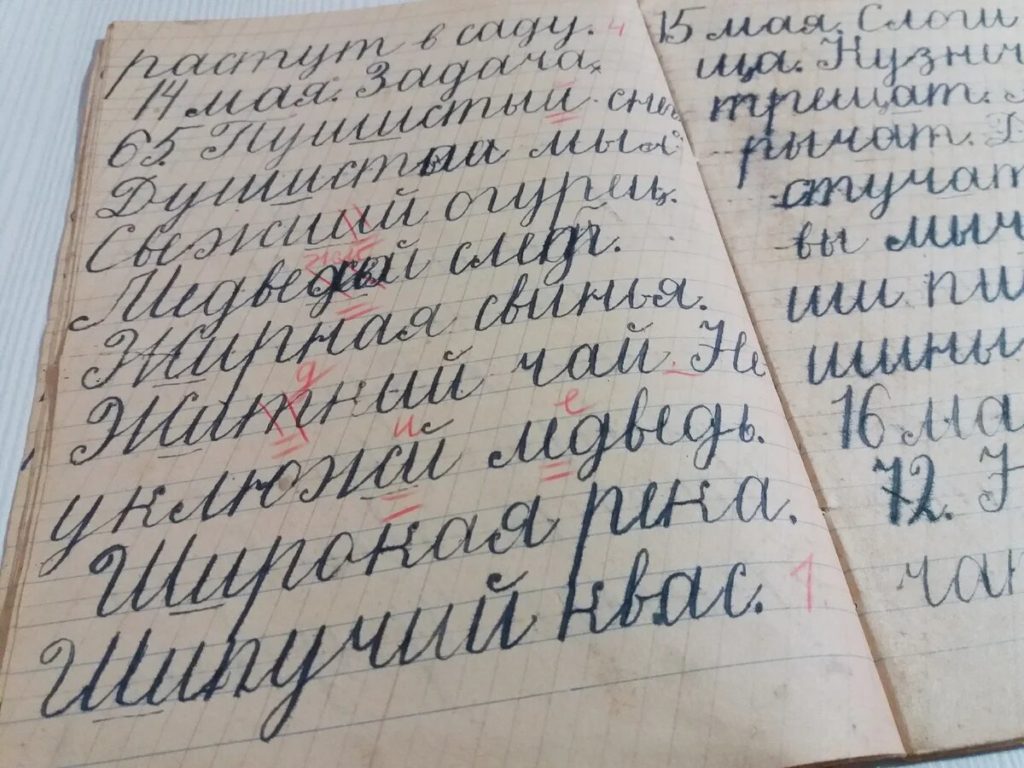 растут в саду. 4
14 мая. Задача.
65. Пушистыи снег
Душистыи мыл
Свежиий огурец.
след.
Жирная свинья.
Житкий чай. Не
уклюжй мдведь.
Широкая река.
Шипучий квас. 1.
15 мая. Слоги
ща. Кузнич
трещат.
рычат.
стучат
вы мыч
ши пи
шины
16 ма
72. Н
чан